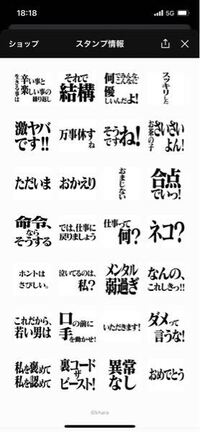 18:18
5G
ショップ
スタンプ情報
生きる事は
辛い事と
楽しい事の
繰り返し
それで
結構
何でそんなに
優
しいんだよ!
スッキリした
激ヤバ
です!!
万事休すね
そう
ですね!
お茶の子
さいさい
よん!
ただいま
おかえり
おまじない
合点
でいっ!
命令、
なら
そうする
では、仕事に
戻りましょう
仕事って
何?
ネコ?
ホントは
さびしい。
泣いてるのは、
私?
メンタル
弱過ぎ
なんの、
これしきっ!!
これだから、
若い男は
口の前に
手を動かせ!
いただきます!
ダメって
言うな!
私を褒めて
私を認めて
裏コード
ザ
ビースト!
異常
なし
おめでとう
©khara